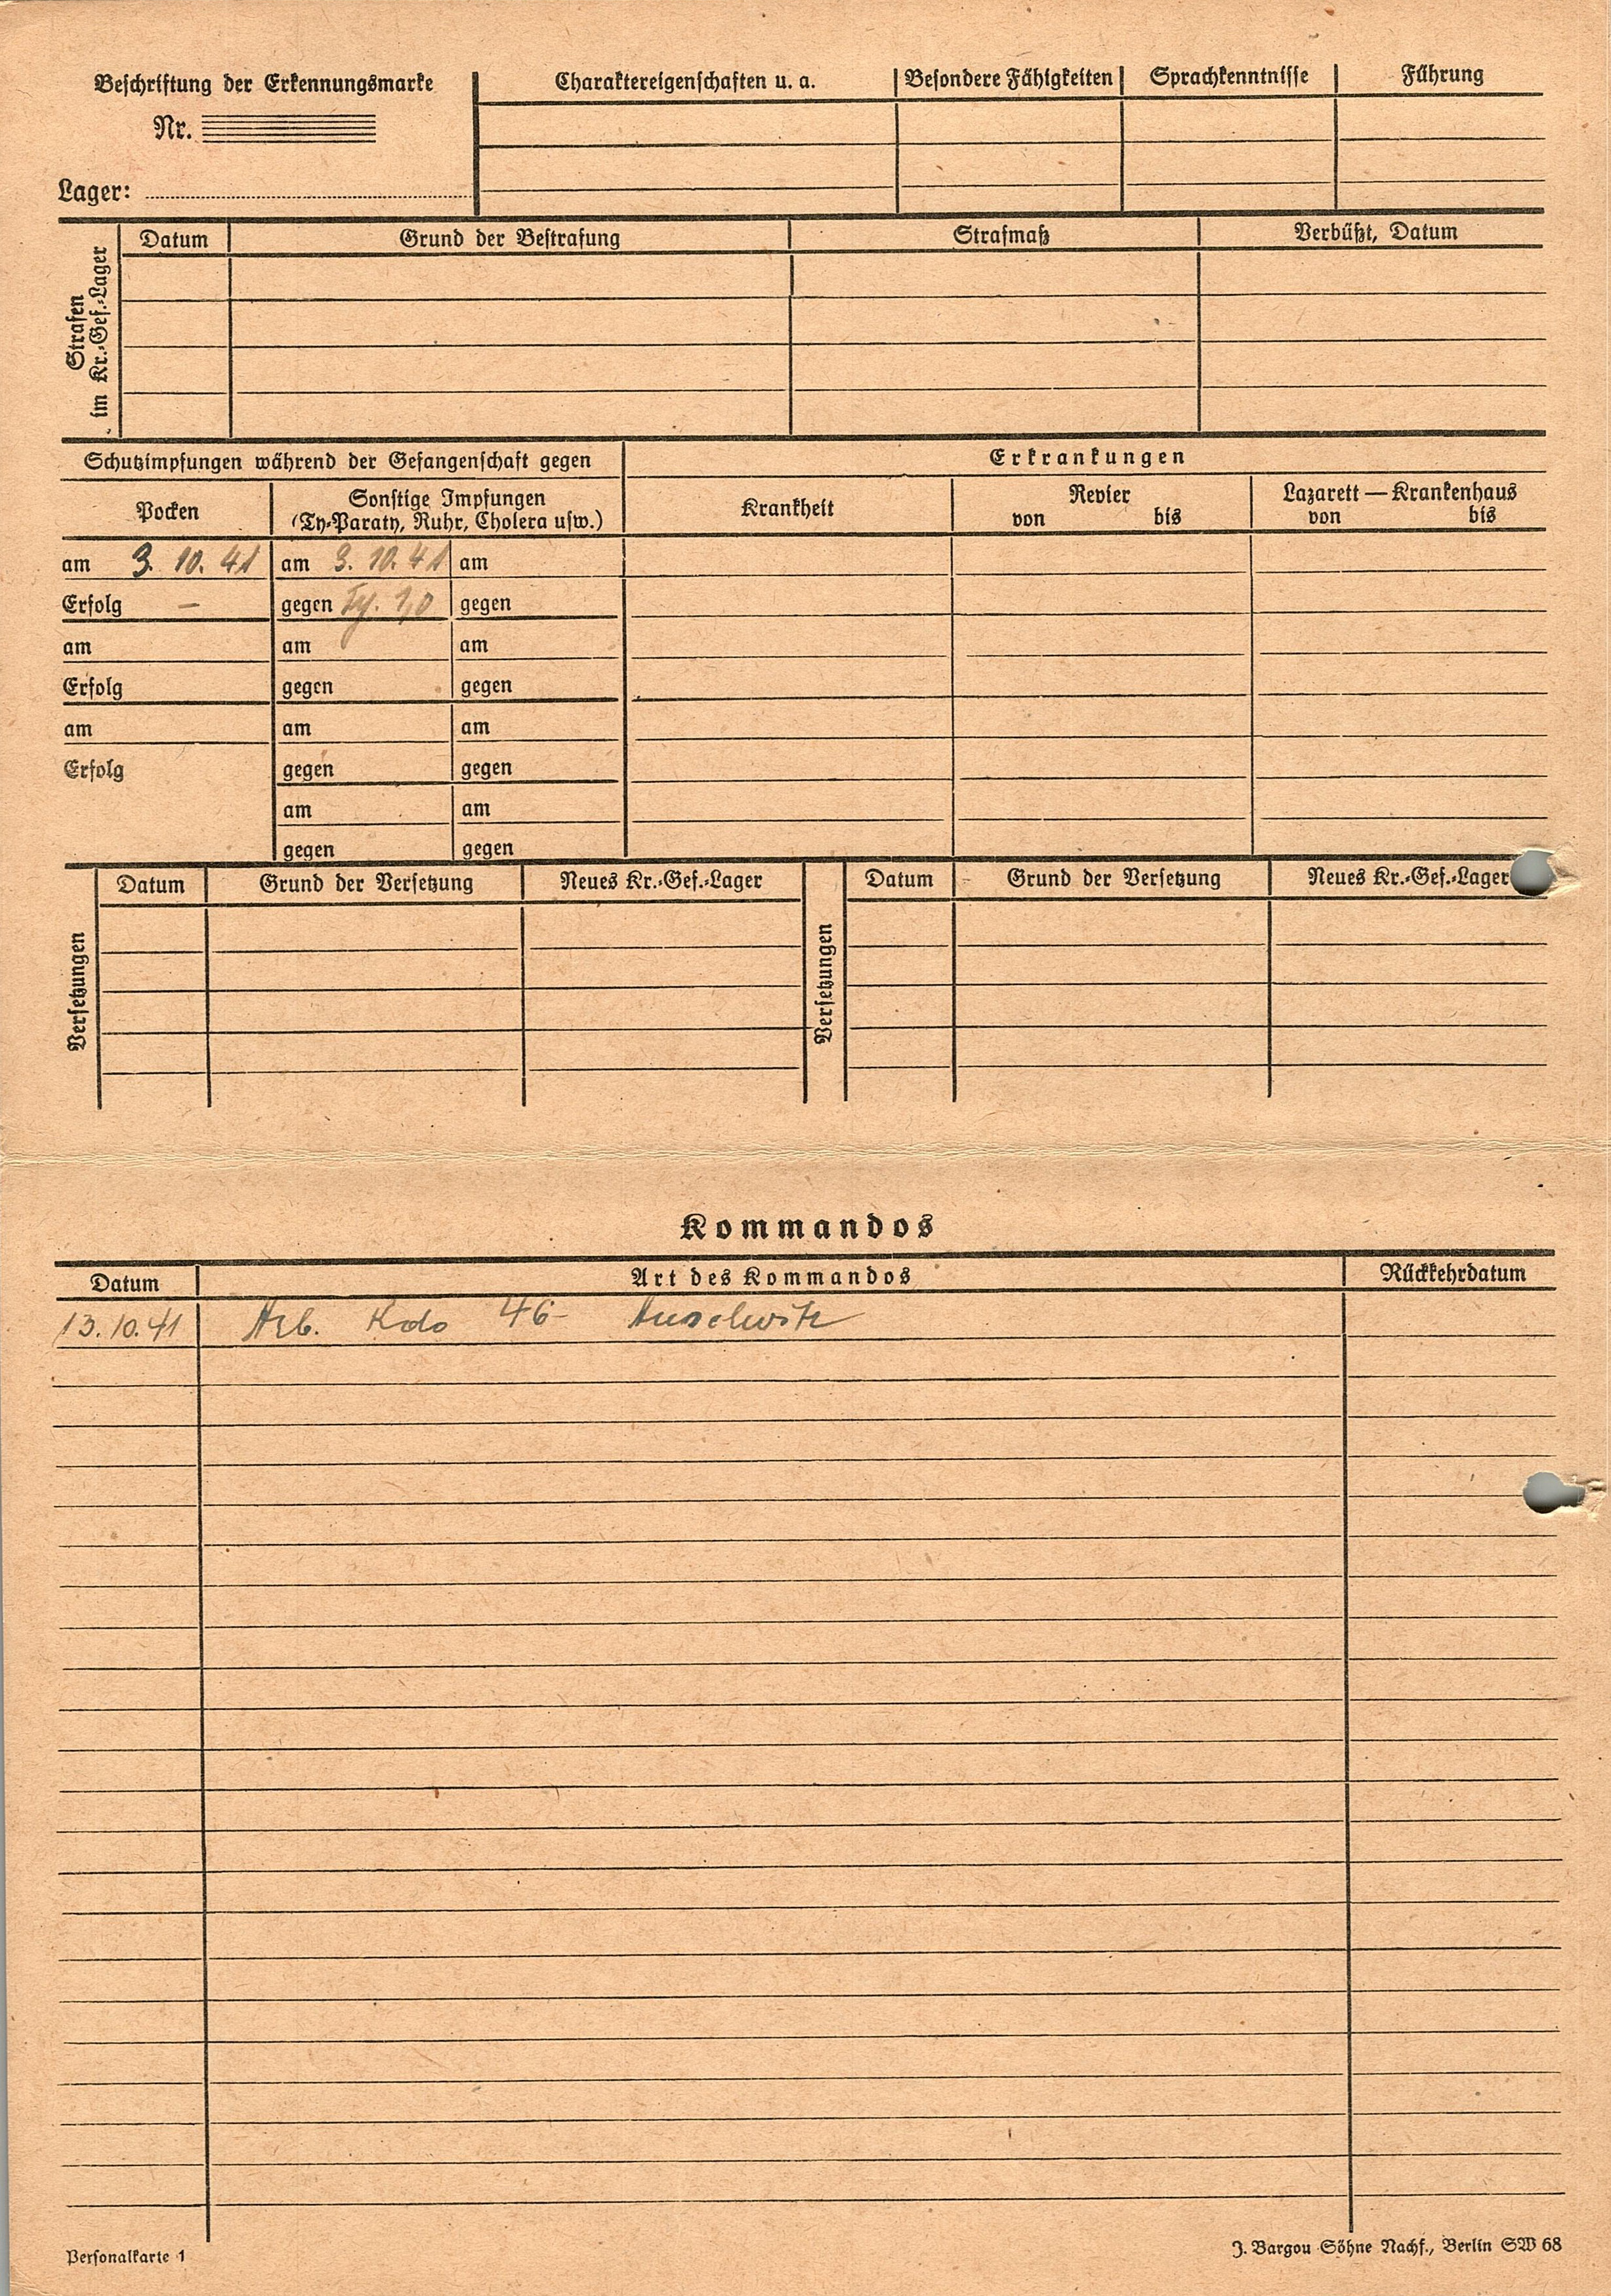 Beschriftung der Erkennungsmarke
Nr.
Lager:
Charaktereigenschaften u. a. Besondere Fähigkeiten Sprachkenntnisse Führung
Strafen
im Kr.-Gef.-Lager
Datum Grund der Bestrafung Strafmaß Verbüßt, Datum
Schutzimpfungen während der Gefangenschaft gegen
Erkrankungen
Pocken
Sonstige Impfungen
(Ty-Paraty, Ruhr, Cholera usw.)
Krankheit
Revier
von bis
Lazarett — Krankenhaus
von bis
am 3. 10. 41 am 3. 10. 41 am
Erfolg – gegen Ty. 1,0 gegen
am am am
Erfolg gegen gegen
am am am
Erfolg gegen gegen
am am
gegen gegen
Versetzungen
Datum Grund der Versetzung Neues Kr.-Gef.-Lager
Versetzungen
Datum Grund der Versetzung Neues Kr.-Gef.-Lager
Kommandos
Datum Art des Kommandos Rückkehrdatum
13.10.41 Arb. Kdo 46- Auschwitz
Personalkarte 1
J. Bargou Söhne Nachf., Berlin SW 68